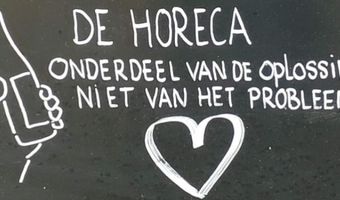 DE HORECA
ONDERDEEL VAN DE OPLOSSI
NIET VAN HET PROBLEE